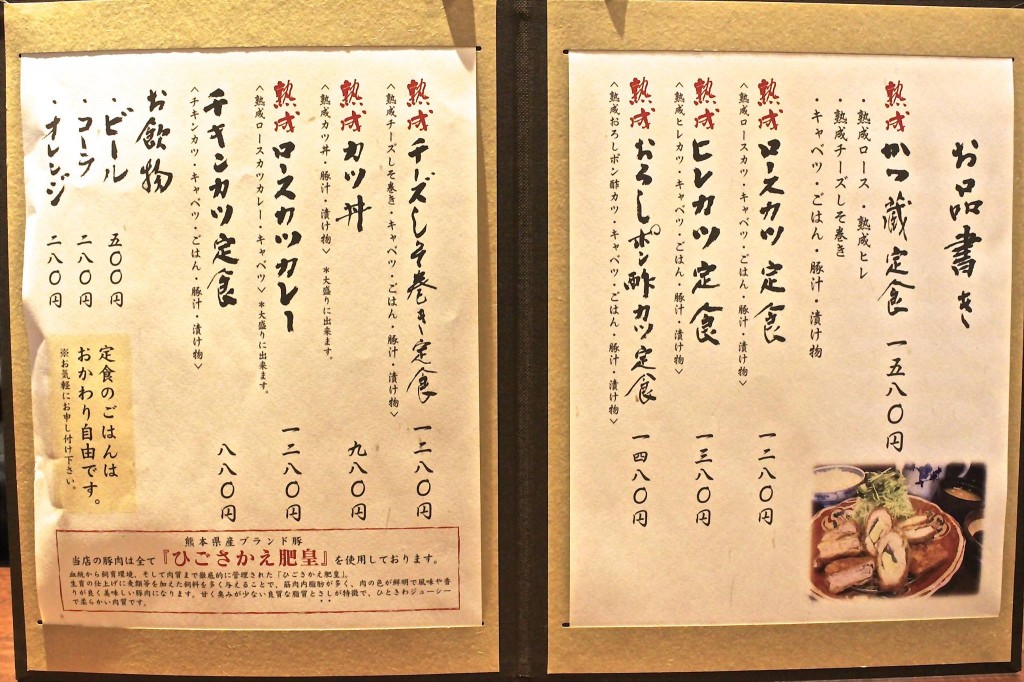 お品書き
熟成かつ蔵定食 一五八〇円
・熟成ロース ・熟成ヒレ
・熟成チーズしそ巻き
・キャベツ・ごはん・豚汁・漬け物
熟成ロースカツ定食 一二八〇円
〈熟成ロースカツ・キャベツ・ごはん・豚汁・漬け物〉
熟成ヒレカツ定食 一三八〇円
〈熟成ヒレカツ・キャベツ・ごはん・豚汁・漬け物〉
熟成おろしポン酢カツ定食 一四八〇円
〈熟成おろしポン酢カツ・キャベツ・ごはん・豚汁・漬け物〉
熟成チーズしそ巻き定食 一二八〇円
〈熟成チーズしそ巻き・キャベツ・ごはん・豚汁・漬け物〉
熟成カツ丼 九八〇円
〈熟成カツ丼・豚汁・漬け物〉 *大盛りに出来ます。
熟成ロースカツカレー 一二八〇円
〈熟成ロースカツカレー・キャベツ〉 *大盛りに出来ます。
チキンカツ定食 八八〇円
〈チキンカツ・キャベツ・ごはん・豚汁・漬け物〉
お飲物
・ビール 五〇〇円
・コーラ 二八〇円
・オレンジ 二八〇円
定食のごはんは
おかわり自由です。
※お気軽にお申し付け下さい。
熊本県産ブランド豚
当店の豚肉は全て『ひごさかえ肥皇』を使用しております。
血統から飼育環境、そして肉質まで徹底的に管理された「ひごさかえ肥皇」。
生育の仕上げに麦類等を加えた飼料を多く与えることで、筋肉内脂肪が多く、肉の色が鮮明で風味や香
りが良く美味しい豚肉になります。甘く臭みが少ない良質な脂質とさしが特徴で、ひときわジューシー
で柔らかい肉質です。